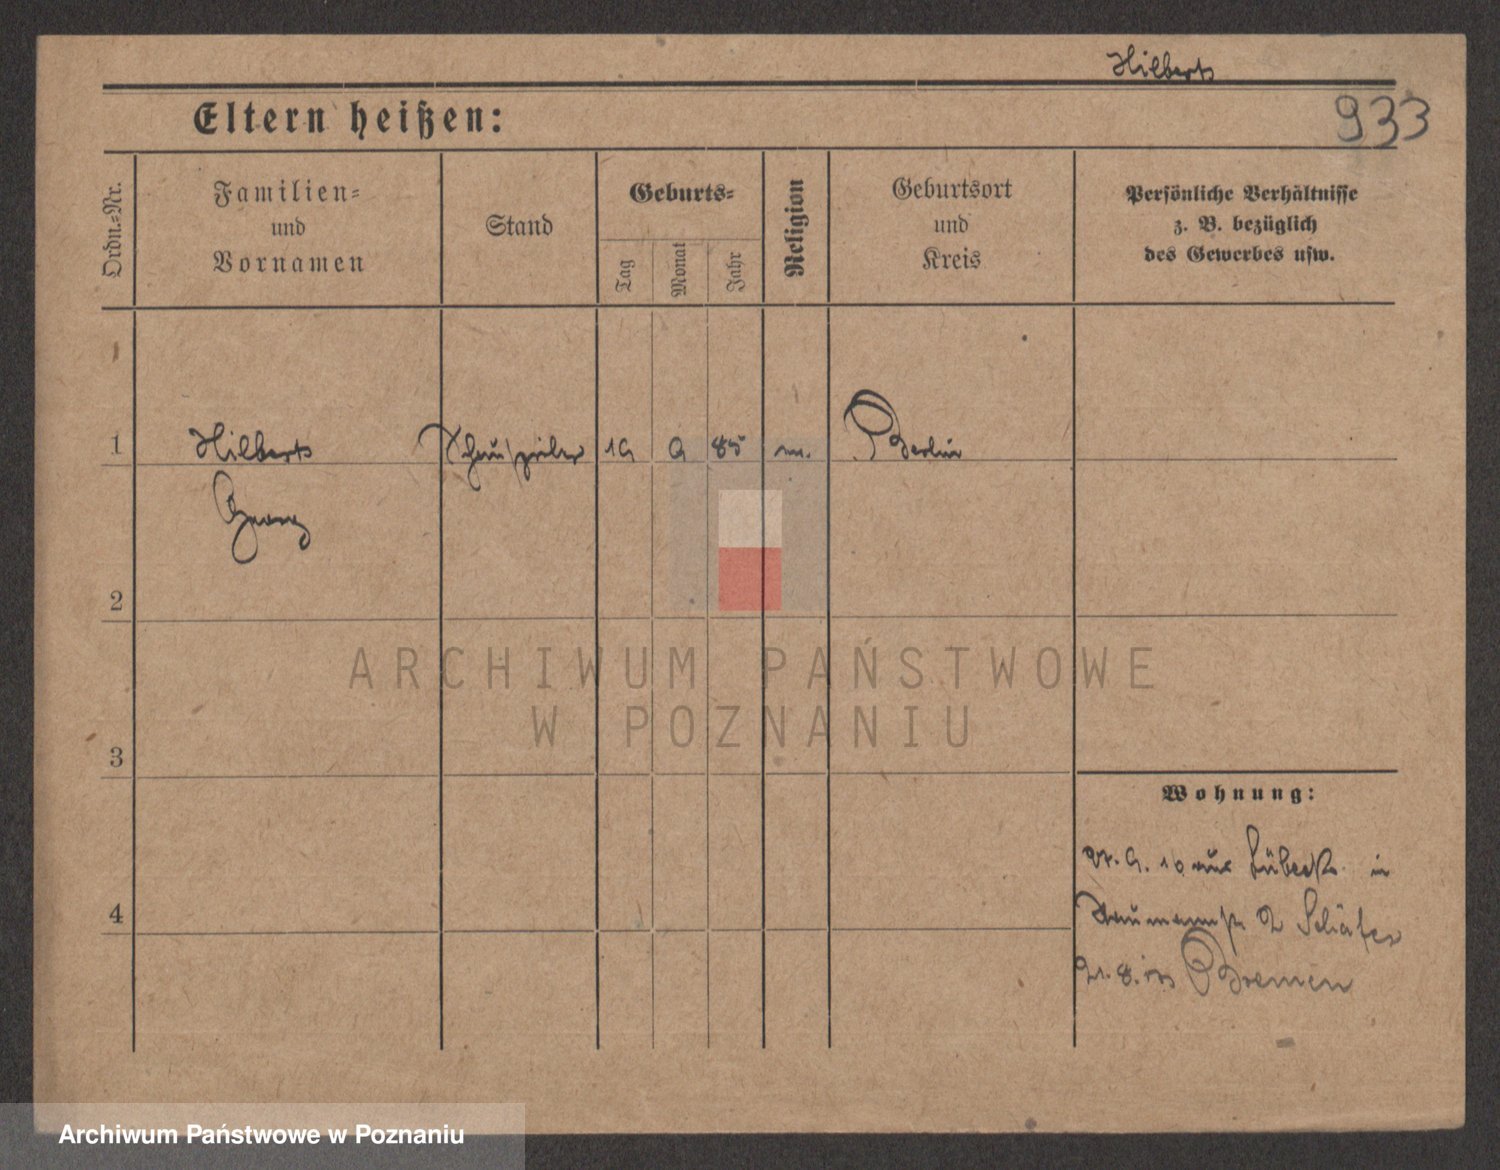 Hilberts
933
Eltern heißen:
Ordn.-Nr.
Familien-
und
Vornamen
Stand
Geburts-
Tag
Monat
Jahr
Religion
Geburtsort
und
Kreis
Persönliche Verhältnisse
z. B. bezüglich
des Gewerbes usw.
1 Hilberts Schauspieler 19 9 85 m. Berlin
Georg
2
ARCHIWUM PAŃSTWOWE
W POZNANIU
3
Wohnung:
9. 10 aus Lübeck in
4
2 Schäfer
8. Bremen
Archiwum Państwowe w Poznaniu